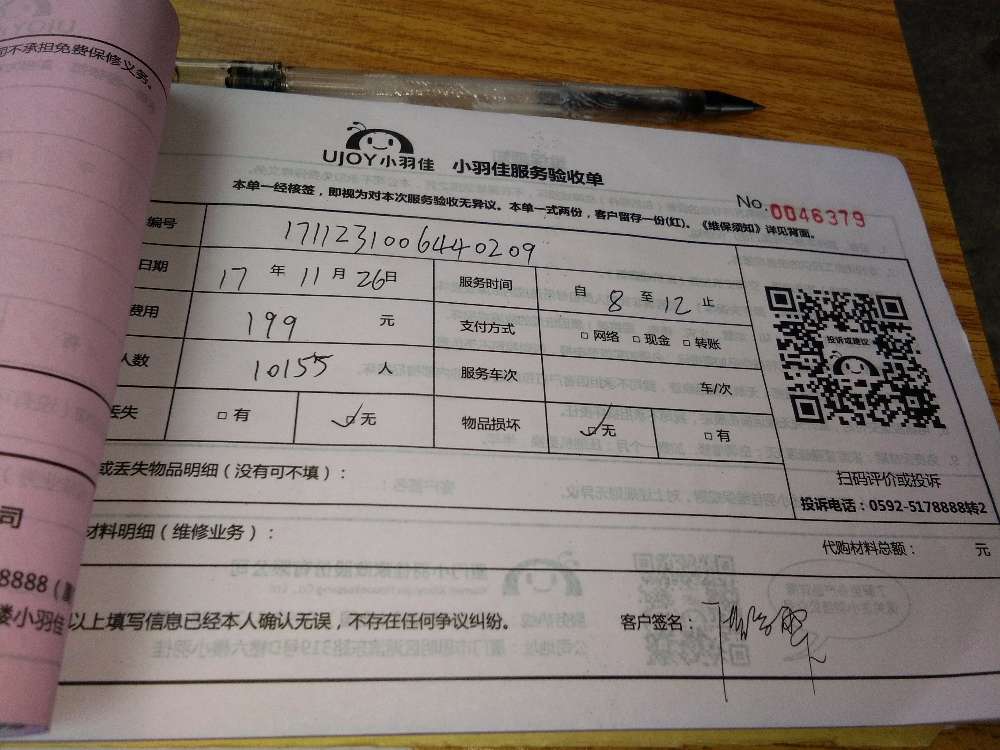 司不承担免费保修义务。
UJOY小羽佳 小羽佳服务验收单
本单一经核签，即视为对本次服务验收无异议。本单一式两份，客户留存一份(红)。《维保须知》详见背面。
No. 0046379
编号 1711231006440209
日期 17年11月26日 服务时间 自8至12止
费用 199元 支付方式 □网络 □现金 □转账
人数 10155人 服务车次 车/次
丢失 □有 ☑无 物品损坏 ☑无 □有
投诉或建议
扫码评价或投诉
投诉电话：0592-5178888转2
或丢失物品明细（没有可不填）：
材料明细（维修业务）： 代购材料总额： 元
以上填写信息已经本人确认无误，不存在任何争议纠纷。 客户签名：
司
8888
楼小羽佳